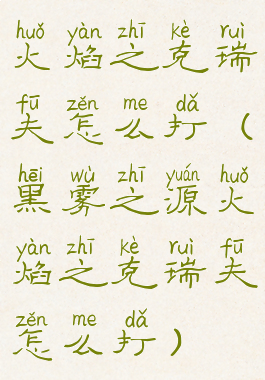 huǒ yàn zhī kè ruì
火焰之克瑞
fū zěn me dǎ
夫怎么打（
hēi wù zhī yuán huǒ
黑雾之源火
yàn zhī kè ruì fū
焰之克瑞夫
zěn me dǎ
怎么打）